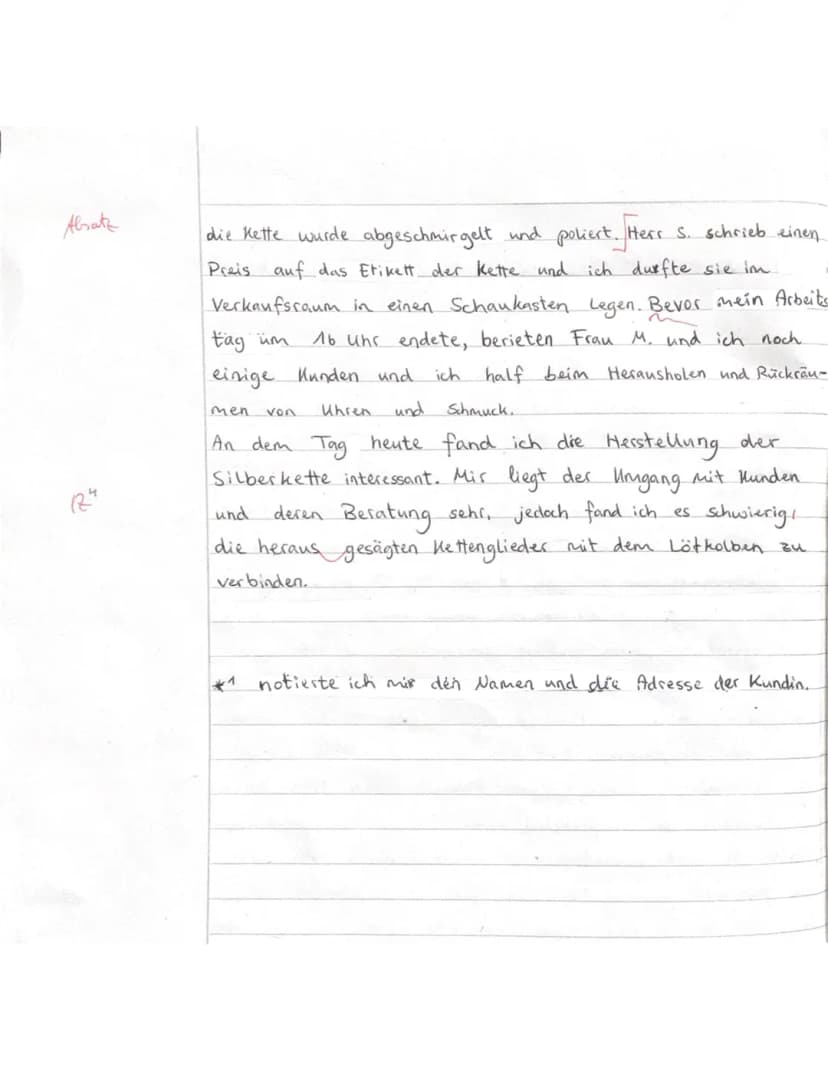 Absatz
die Kette wurde abgeschmirgelt und poliert. Herr S. schrieb einen
Preis auf das Etikett der Kette und ich durfte sie im
Verkaufsraum in einen Schaukasten legen. Bevor mein Arbeits
tag um 16 Uhr endete, berieten Frau M. und ich noch
einige Kunden und ich half beim Herausholen und Rückräu-
men von Uhren und Schmuck.
An dem Tag heute fand ich die Herstellung der
Silberkette interessant. Mir liegt der Umgang mit Kunden
R4
und deren Beratung sehr, jedoch fand ich es schwierig,
die heraus gesägten Kettenglieder mit dem Lötkolben zu
verbinden.
*1 notierte ich mir den Namen und die Adresse der Kundin.